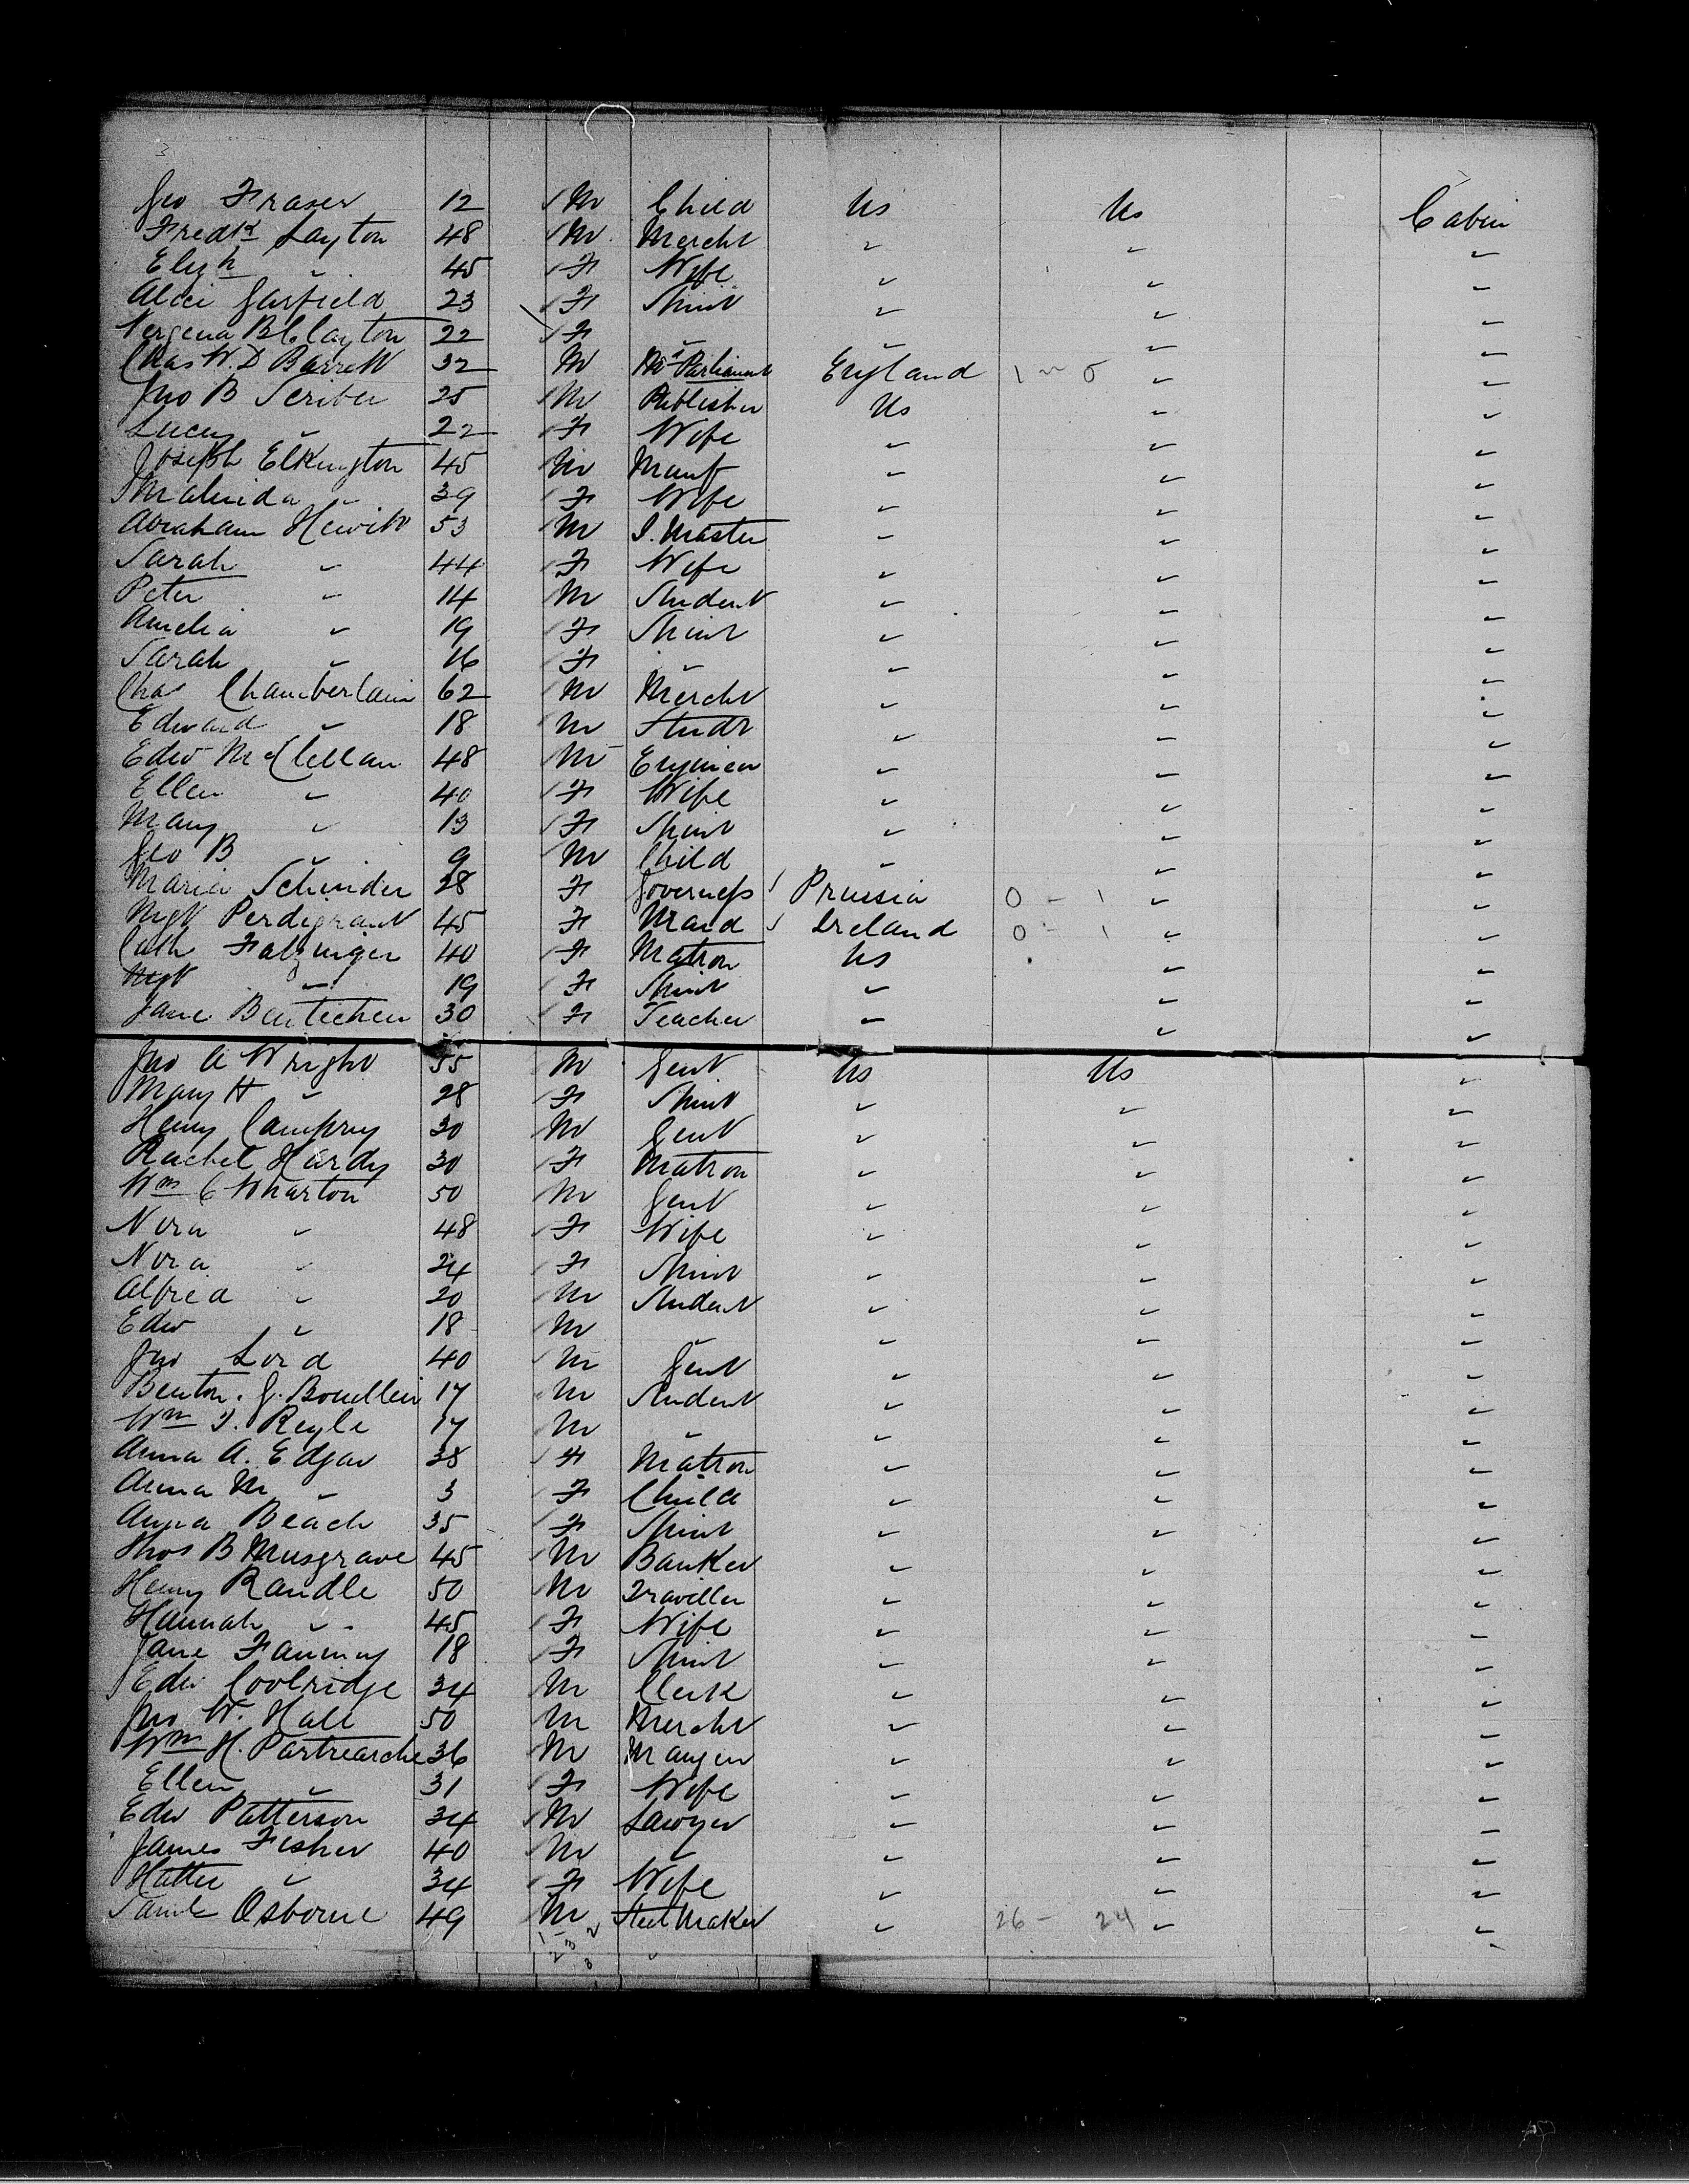 3
Geo Fraser 12 M Child Us Us Cabin
Fredk Layton 48 M Mercht " " "
Elizh " 45 F Wife " " "
Alice Garfield 23 F Spins " " "
Vergena B Clayton 22 F " " " "
Chas W. D Barrett 32 M M Parliament England 1 - 0 " "
Jno B Scriber 25 M Publisher Us " "
Lucy " 22 F Wife " " "
Joseph Elkington 45 M Manf " " "
Malinda " 39 F Wife " " "
Abraham Hewitt 53 M I. Master " " "
Sarah " 44 F Wife " " "
Peter " 14 M Student " " "
Amelia " 19 F Spins " " "
Sarah " 16 F " " " "
Chas Chamberlain 62 M Mercht " " "
Edward " 18 M Studt " " "
Edw McClellan 48 M Engineer " " "
Ellen " 40 F Wife " " "
Mary " 13 F Spins " " "
Geo B " 9 M Child " " "
Maria Schinder 28 F Governess Prussia 0 - 1 " "
Mgt Perdigrant 45 F Maid Ireland 0 - 1 " "
Cath Falzinger 40 F Matron Us " "
Mgt " 19 F Spins " " "
Jane 30 F Teacher " " "
Jno A Wright 55 M Gent Us Us "
Mary H " 28 F Spins " " "
Henry 30 M Gent " " "
Rachel Hardy 30 F Matron " " "
Wm C Wharton 50 M Gent " " "
Nora " 48 F Wife " " "
Nora " 24 F Spins " " "
Alfred " 20 M Student " " "
Edw " 18 M " " " "
Jno Lord 40 M Gent " " "
Benton. G. 17 M Student " " "
Wm J. Reyle 17 M " " " "
Anna A. Edgar 38 F Matron " " "
Anna M " 3 F Child " " "
Anna Beach 35 F Spins " " "
Thos B Musgrave 45 M Banker " " "
Henry Randle 50 M Traveller " " "
Hannah " 45 F Wife " " "
Jane Fanning 18 F Spins " " "
Edw Coolridge 34 M Clerk " " "
Jno W. Hall 50 M Mercht " " "
Wm H. Partrearche 36 M Manger " " "
Ellen " 31 F Wife " " "
Edw Patterson 34 M Lawyer " " "
James Fisher 40 M " " " "
Hattie " 34 F Wife " " "
Saml Osborne 49 M Steel Maker " 26 - 24 " "